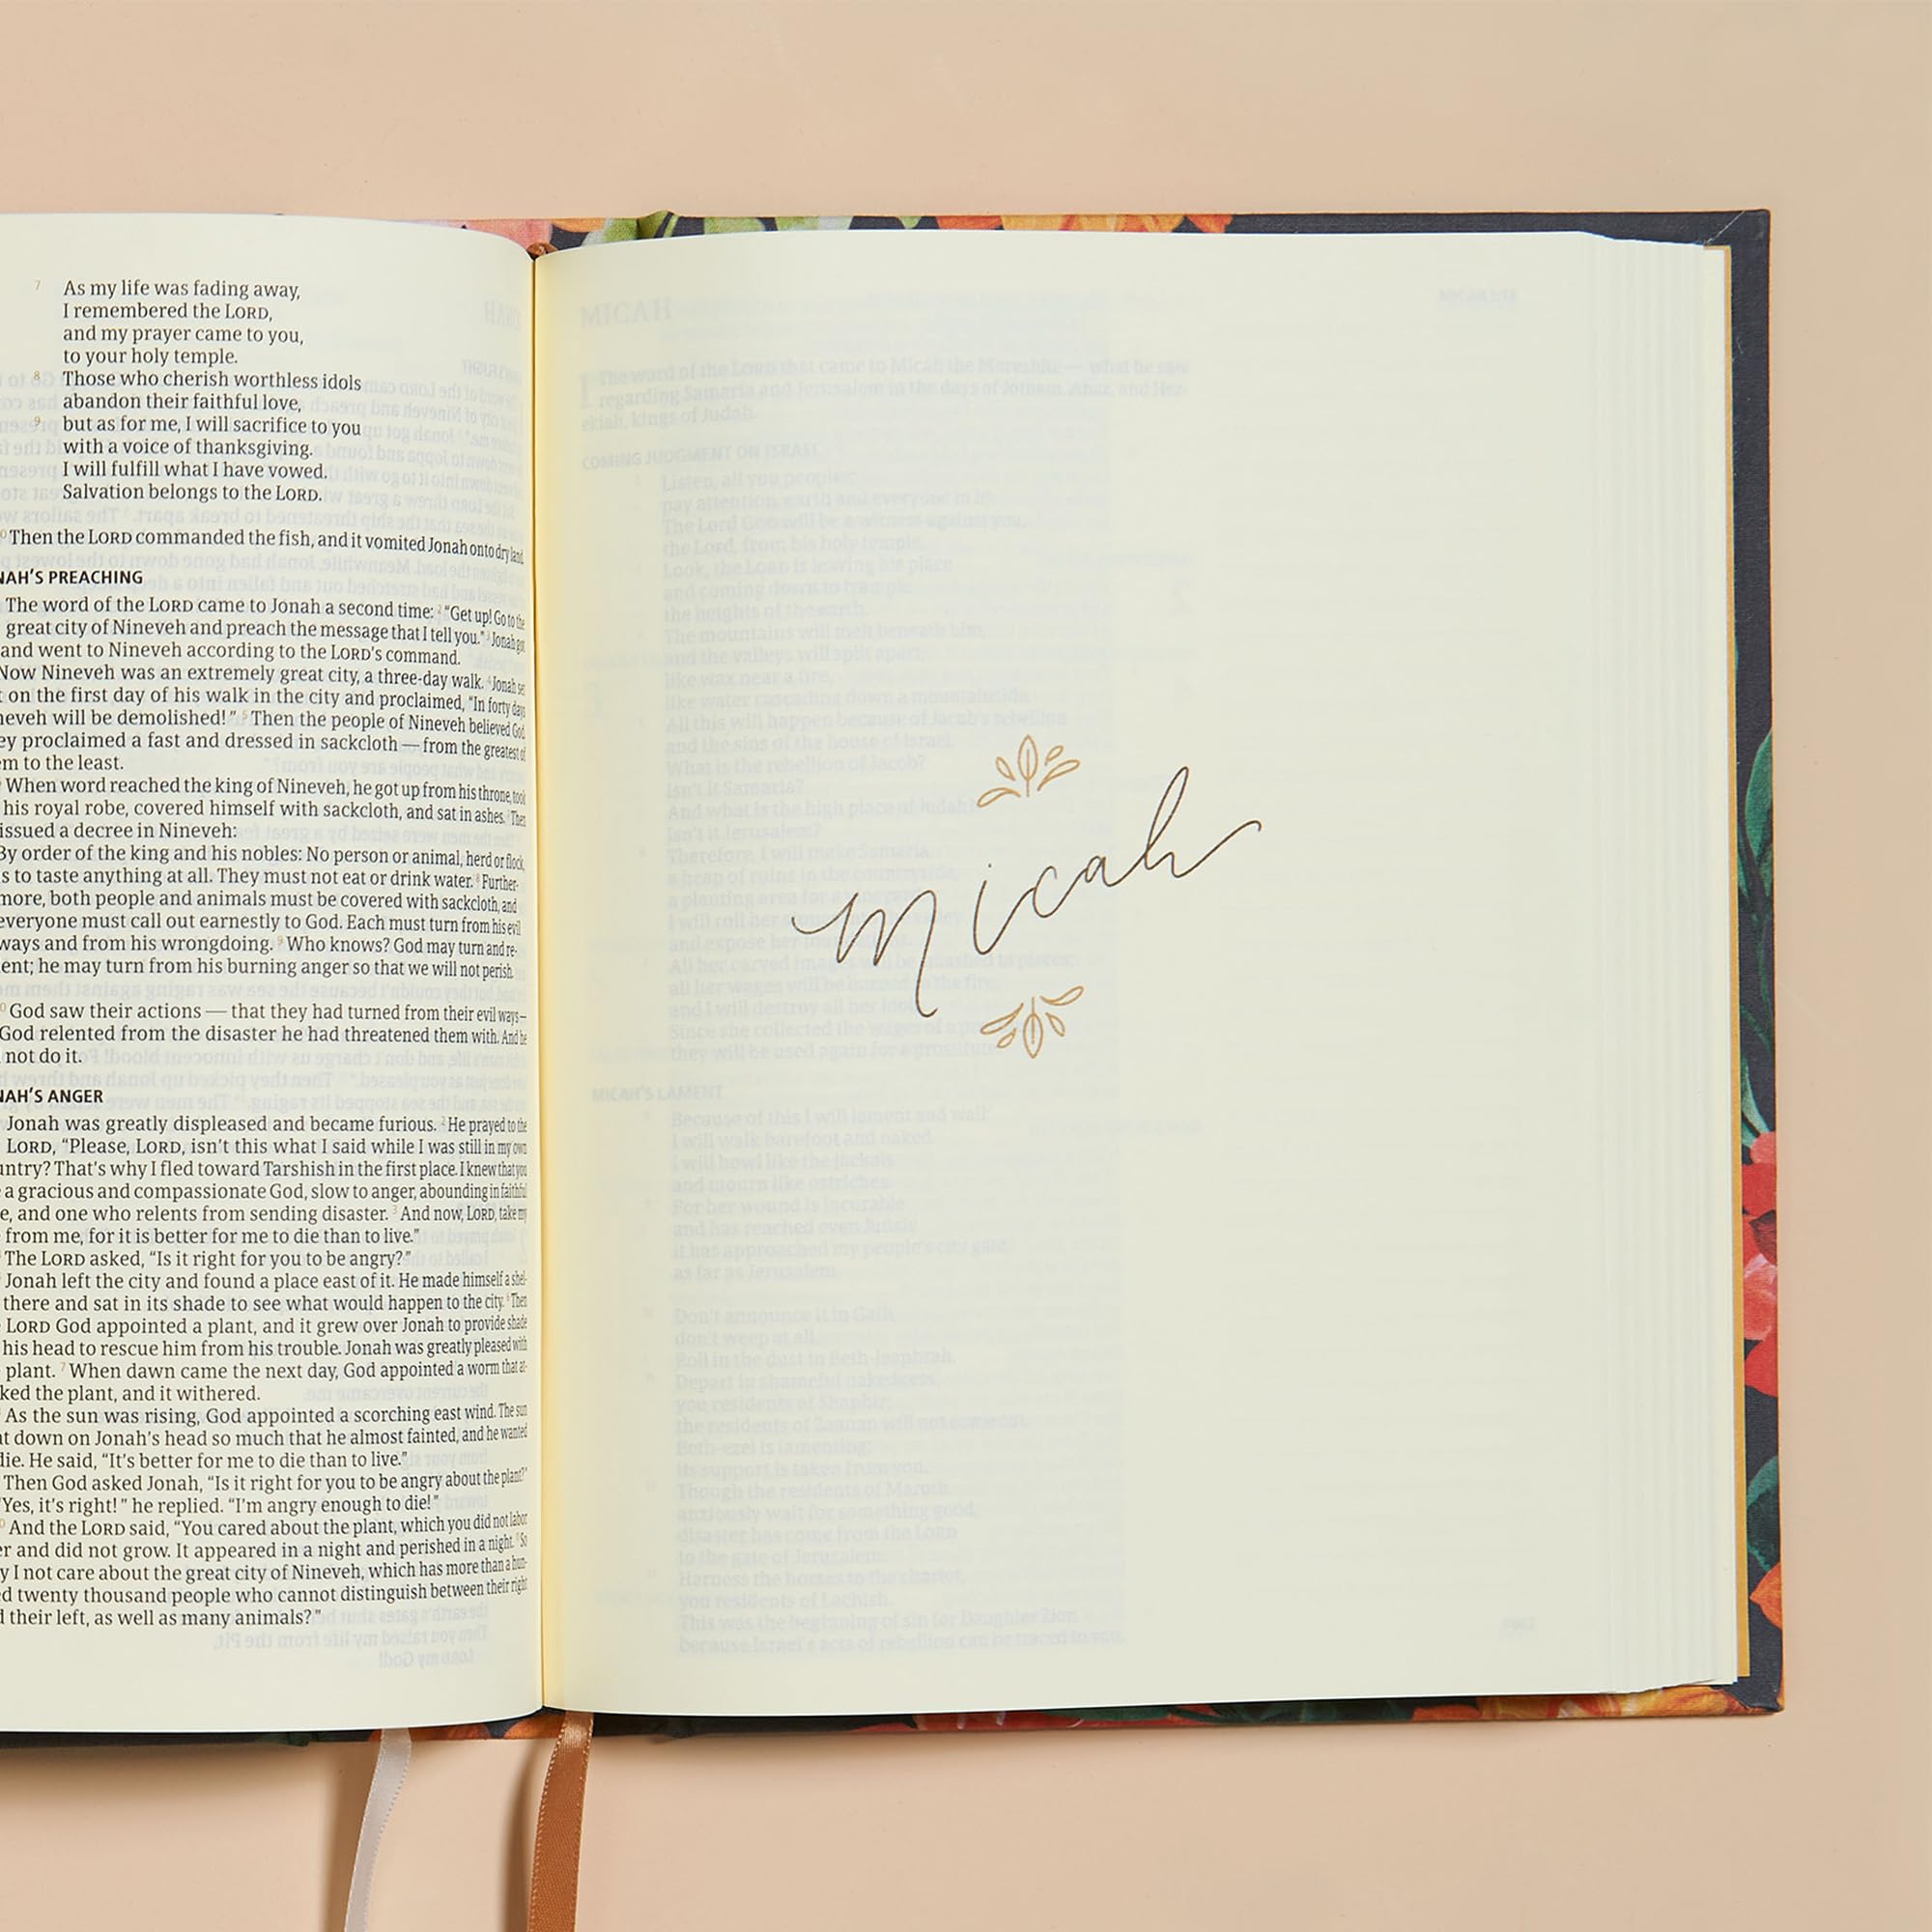 7 As my life was fading away,
I remembered the LORD,
and my prayer came to you,
to your holy temple.
8 Those who cherish worthless idols
abandon their faithful love,
9 but as for me, I will sacrifice to you
with a voice of thanksgiving.
I will fulfill what I have vowed.
Salvation belongs to the LORD.
Then the LORD commanded the fish, and it vomited Jonah onto dry land.
NAH'S PREACHING
The word of the LORD came to Jonah a second time: 2 "Get up! Go to the
great city of Nineveh and preach the message that I tell you." 3 Jonah got
and went to Nineveh according to the LORD's command.
Now Nineveh was an extremely great city, a three-day walk. 4 Jonah set
on the first day of his walk in the city and proclaimed, "In forty days
neveh will be demolished!" 5 Then the people of Nineveh believed God.
ey proclaimed a fast and dressed in sackcloth — from the greatest of
em to the least.
When word reached the king of Nineveh, he got up from his throne, took
his royal robe, covered himself with sackcloth, and sat in ashes. 7 Then
issued a decree in Nineveh:
By order of the king and his nobles: No person or animal, herd or flock,
s to taste anything at all. They must not eat or drink water. 8 Further-
more, both people and animals must be covered with sackcloth, and
everyone must call out earnestly to God. Each must turn from his evil
ways and from his wrongdoing. 9 Who knows? God may turn and re-
ent; he may turn from his burning anger so that we will not perish.
God saw their actions — that they had turned from their evil ways —
God relented from the disaster he had threatened them with. And he
not do it.
NAH'S ANGER
Jonah was greatly displeased and became furious. 2 He prayed to the
LORD, "Please, LORD, isn't this what I said while I was still in my own
untry? That's why I fled toward Tarshish in the first place. I knew that you
a gracious and compassionate God, slow to anger, abounding in faithful
e, and one who relents from sending disaster. 3 And now, LORD, take my
from me, for it is better for me to die than to live."
The LORD asked, "Is it right for you to be angry?"
Jonah left the city and found a place east of it. He made himself a shel-
there and sat in its shade to see what would happen to the city. 6 Then
LORD God appointed a plant, and it grew over Jonah to provide shade
his head to rescue him from his trouble. Jonah was greatly pleased with
plant. 7 When dawn came the next day, God appointed a worm that at-
ked the plant, and it withered.
As the sun was rising, God appointed a scorching east wind. The sun
t down on Jonah's head so much that he almost fainted, and he wanted
die. He said, "It's better for me to die than to live."
Then God asked Jonah, "Is it right for you to be angry about the plant?"
"Yes, it's right!" he replied. "I'm angry enough to die!"
And the LORD said, "You cared about the plant, which you did not labor
er and did not grow. It appeared in a night and perished in a night. 11 So
y I not care about the great city of Nineveh, which has more than a hun-
d twenty thousand people who cannot distinguish between their right
d their left, as well as many animals?"
micah